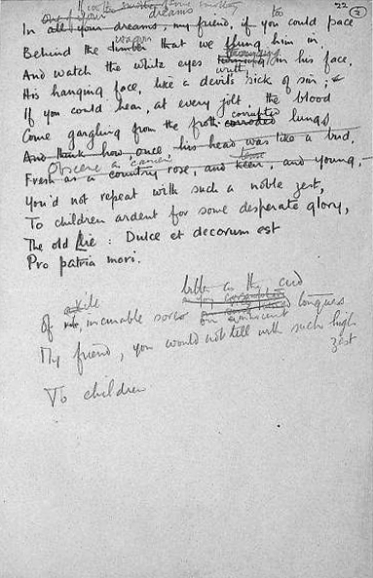 22
If
some smothering
dreams too
In all your dreams, my friend, if you could pace
wagon
Behind the limber that we flung him in,
And watch the white eyes writhing in his face,
His hanging face, like a devil's sick of sin;
If you could hear, at every jolt, the blood
corrupted
Come gargling from the froth corroded lungs
And think how, once, his head was like a bud,
Obscene as cancer
Fresh as a country rose, and keen, and young, —
You'd not repeat with such a noble zest,
To children ardent for some desperate glory,
The old Lie : Dulce et decorum est
Pro patria mori.
bitter as the cud
Of vile, incurable sores on innocent tongues
My friend, you would not tell with such high
zest
To children